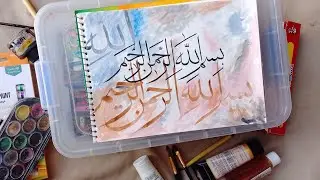 الله
بسم الله الرحمن الرحيم
بسم الله الرحمن الرحيم